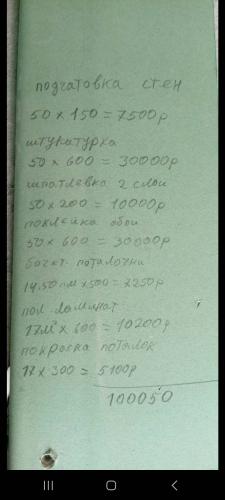 подчатовка стен
50 × 150 = 7500р
штукатурка
50 × 600 = 30000р
шпатлевка 2 слои
50 × 200 = 10000р
поклейка обои
50 × 600 = 30000р
потолочни
14.50 пм × 500 = 7250р
пол ламинат
17м² × 600 = 10200р
покраска потолок
17 × 300 = 5100р
100050